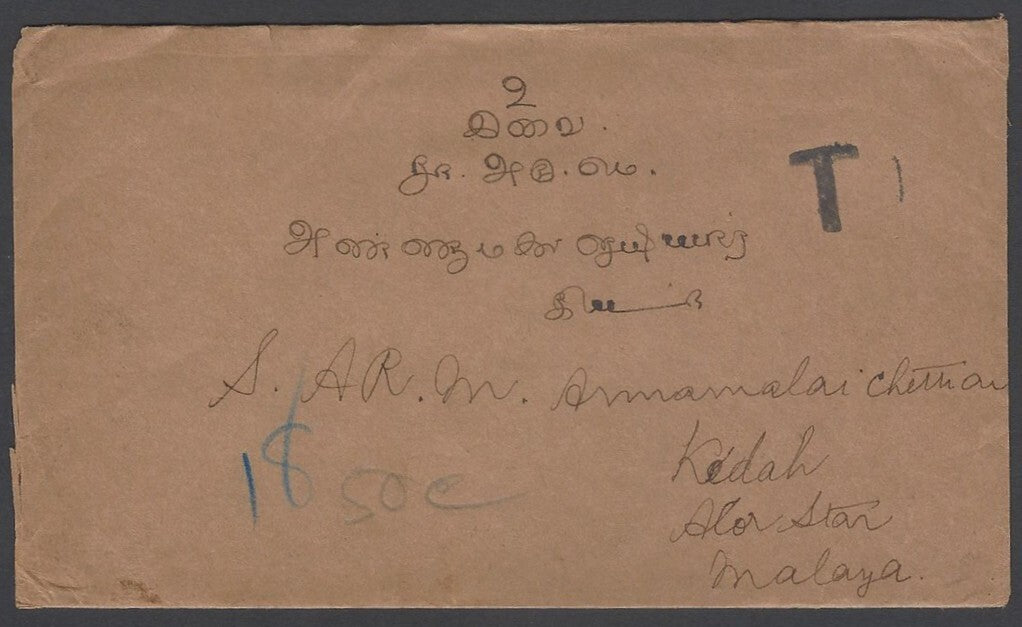 உ
இவை.
சு. அரு. மெ.
அண்ணாமலை செட்டியார்
T
S. AR. M. Annamalai Chettiar
Kedah
Alor Star
Malaya.
18
50 c